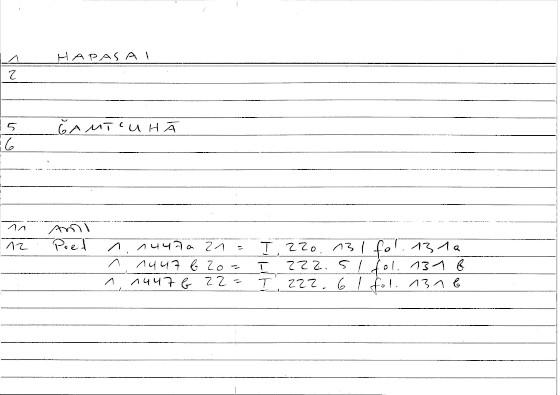 1 HAPASAI
2
5 ǦAMTʿUHĀ
6
11 Aml
12 Poed 1, 1447a 21 = I, 220, 13 / fol. 131a
1, 1447 b 20 = I, 222. 5 / fol. 131 b
1, 1447 b 22 = I, 222. 6 / fol. 131 b